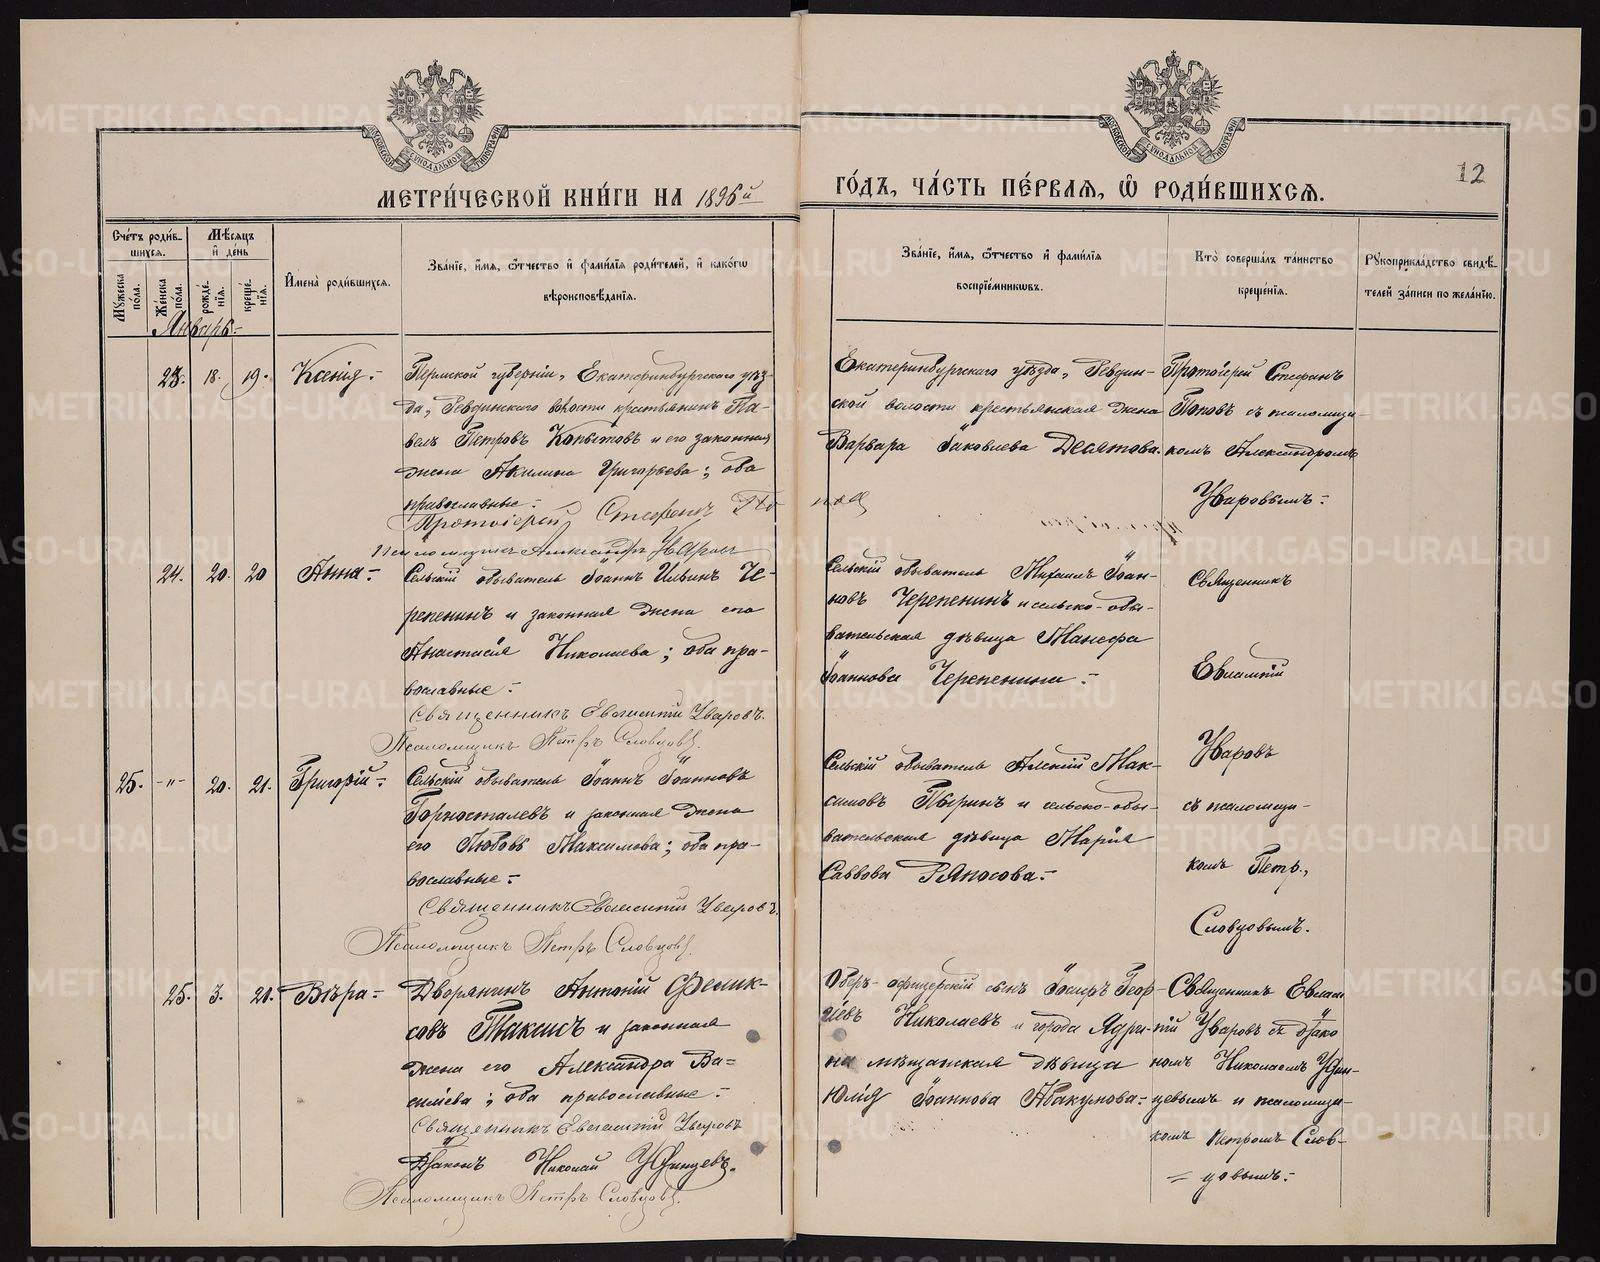 МЕТРИ́ЧЕСКОЙ КНИ́ГИ НА 1896й
ГО́ДЪ, ЧА́СТЬ ПЕ́РВАЯ, Ѿ РОДИ́ВШИХСЯ.
12
Сче́тъ роди́в-
шихся.
Мѣ́сяцъ
и де́нь
Му́жеска по́ла.
Же́нска по́ла.
рожде́нїя.
креще́нїя.
И҆мена̀ роди́вшихся.
Зва́нїе, и҆́мя, ѻ҆́тчество и҆ фами́лїя роди́телей, и҆ како́гѡ
вѣроисповѣ́данїя.
Зва́нїе, и҆́мя, ѻ҆́тчество и҆ фами́лїя
воспрїе́мникѡвъ.
Кто̀ соверша́лъ та́инство
креще́нїя.
Рꙋкоприкла́дство свидѣ́-
телей за́писи по жела́нїю.
Январь
23. 18. 19. Ксенія
Пермской губерніи, Екатеринбургскаго уѣз-
да, Ревдинской волости крестьянинъ Па-
велъ Петровъ Копытовъ и его законная
жена Акилина Григорьева; оба
православные
Протоіерей Стефанъ Попов
Псаломщикъ Александръ Уваровъ
Екатеринбургскаго уѣзда, Ревдин-
ской волости крестьянская жена
Варвара Іаковлева Десятова.
Протоіерей Стефанъ
Поповъ съ псаломщи-
комъ Александромъ
Уваровымъ
24. 20. 20 Анна
Сельскій обыватель Іоаннъ Ильинъ Че-
репенинъ и законная жена его
Анастасія Николаева; оба пра-
вославные
Священникъ Евлампій Уваровъ.
Псаломщикъ Петръ Словцовъ.
Сельскій обыватель Михаилъ Іоан-
новъ Черепенинъ и сельско-обы-
вательская дѣвица Манефа
Іоаннова Черепенина
Священникъ
Евлампій
Уваровъ
съ псаломщи-
комъ Петр.,
Словцовымъ.
25. -"- 20. 21. Григорій
Сельскій обыватель Іоаннъ Іоанновъ
Горносталевъ и законная жена
его Любовь Максимова; оба пра-
вославные
Священникъ Евлампій Уваровъ.
Псаломщикъ Петръ Словцовъ.
Сельскій обыватель Алексій Мак-
симовъ Пыринъ и сельско-обы-
вательская дѣвица Марія
Саввова Ряпосова
25. 3. 21. Вѣра
Дворянинъ Антоній Феликсовъ
и законная
жена его Александра Ва-
силіева; оба православные
Священникъ Евлампій Уваровъ
Діаконъ Николай Удинцевъ.
Псаломщикъ Петръ Словцовъ.
Оберъ-офицерскій сынъ Іосифъ Геор-
гіевъ Николаевъ и города Ядри-
на мѣщанская дѣвица
Юлія Іоаннова Абакумова
Священникъ Евлам
пій Уваровъ съ діако
номъ Николаемъ Удин-
цевымъ и псаломщи-
комъ Петромъ Слов-
цовымъ
METRIKI.GASO-URAL.RU